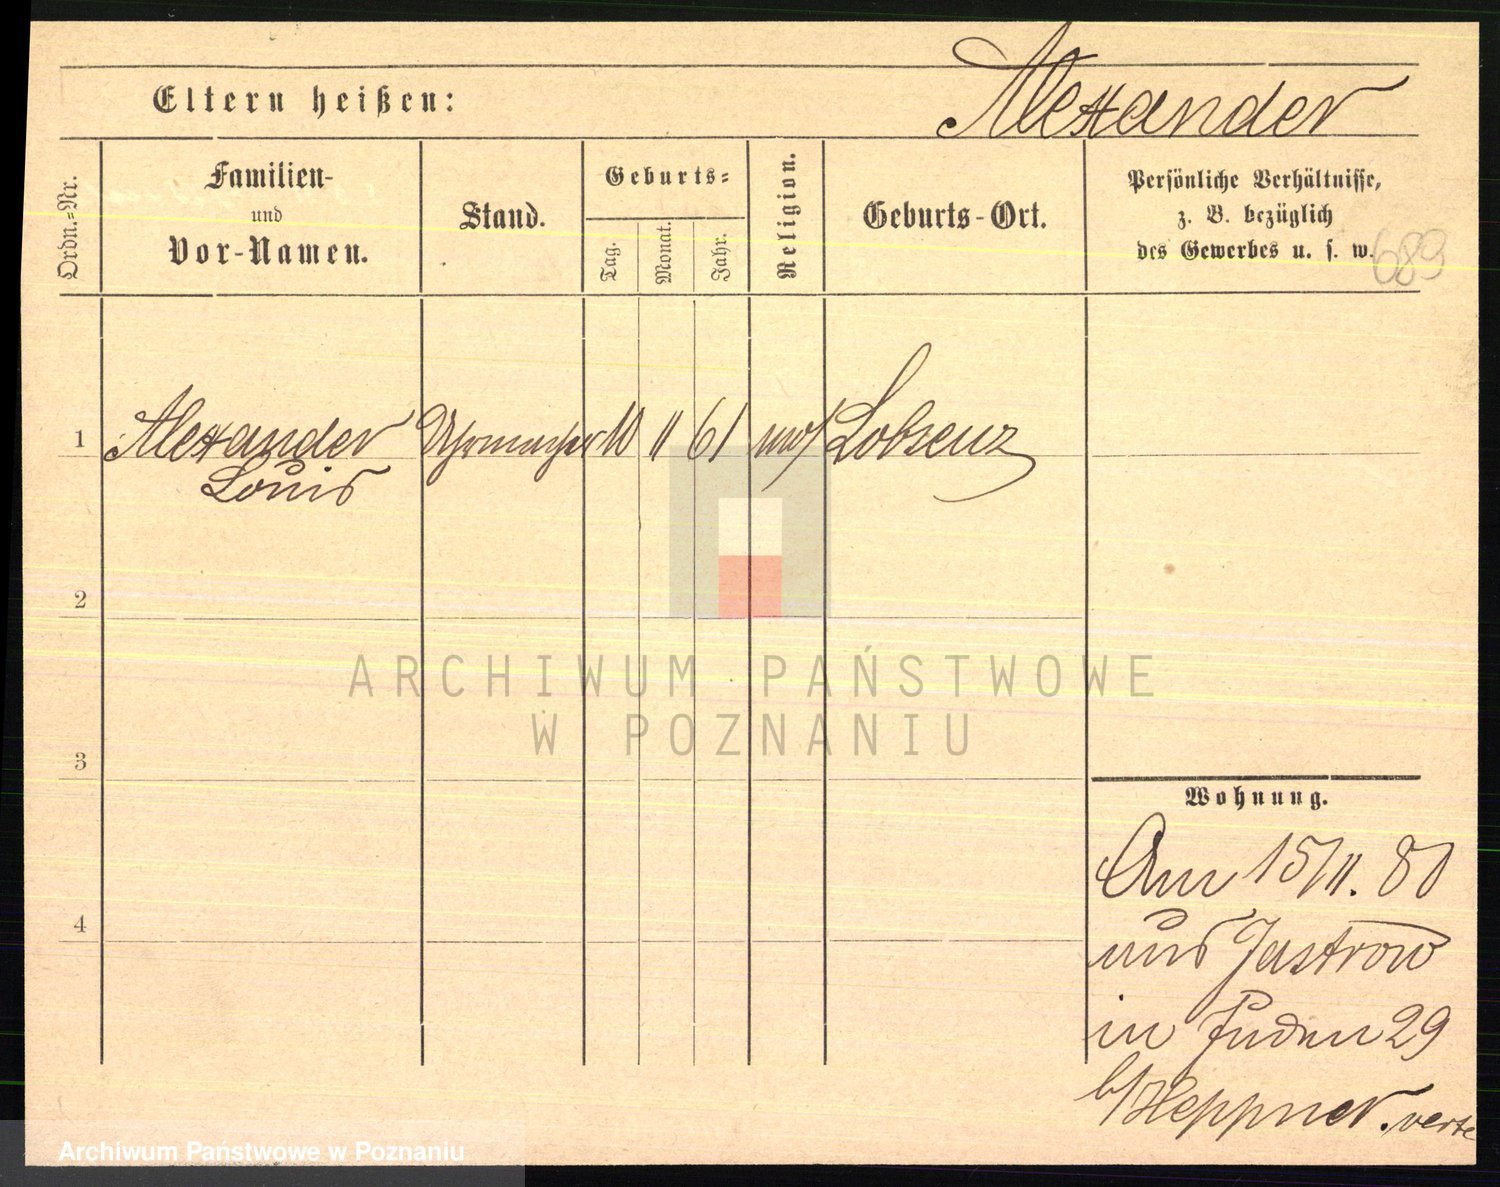 Alexander
Eltern heißen:
Ordn.=Nr.
Familien-
und
Vor-Namen.
Stand.
Geburts=
Tag.
Monat.
Jahr.
Religion.
Geburts-Ort.
Persönliche Verhältnisse,
z. B. bezüglich
des Gewerbes u. s. w.
689
1 Alexander Uhrmacher 10 11 61 mos Lobsenz
Louis
2
3
4
Wohnung.
Am 15/11. 80
aus Jastrow
in Juden 29
b/Heppner. verte
ARCHIWUM PAŃSTWOWE
W POZNANIU
Archiwum Państwowe w Poznaniu